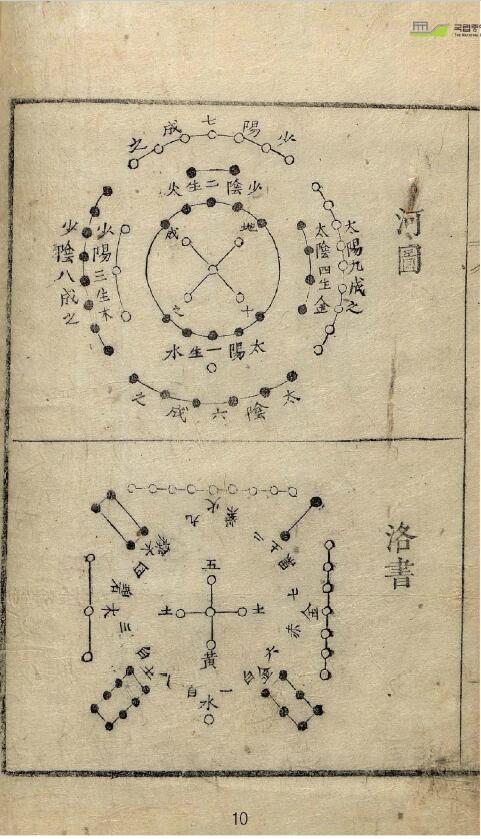 국립중
THE NATIONAL
河圖
少陽七成之
少陰二生火
太陽九成之
太陰四生金
地十成之
少陽三生木
少陰八成之
太陽一生水
太陰六成之
洛書
九火紫
二土黑
四木
七金赤
三木碧
五
土
土
黃
六白金
八白土
一水白
10